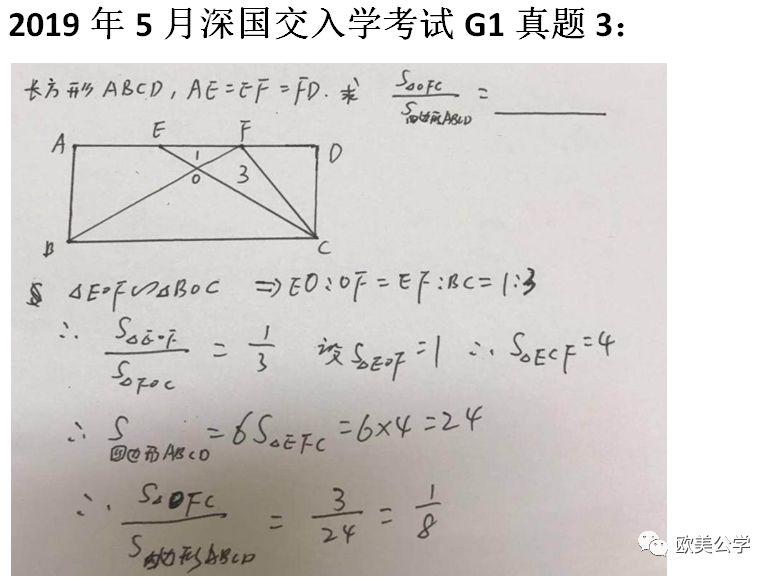 2019 年 5 月深国交入学考试 G1 真题 3：
长方形 ABCD, AE=EF=FD. 求 S△OFC / S四边形ABCD = ______
A E F D
1
O 3
B C
△EOF∽△BOC ⇒ EO:OF=EF:BC=1:3
∴ S△EOF / S△FOC = 1/3 设 S△EOF=1 ∴ S△ECF=4
∴ S四边形ABCD = 6S△EFC = 6×4=24
∴ S△OFC / S四边形ABCD = 3/24 = 1/8
欧美公学